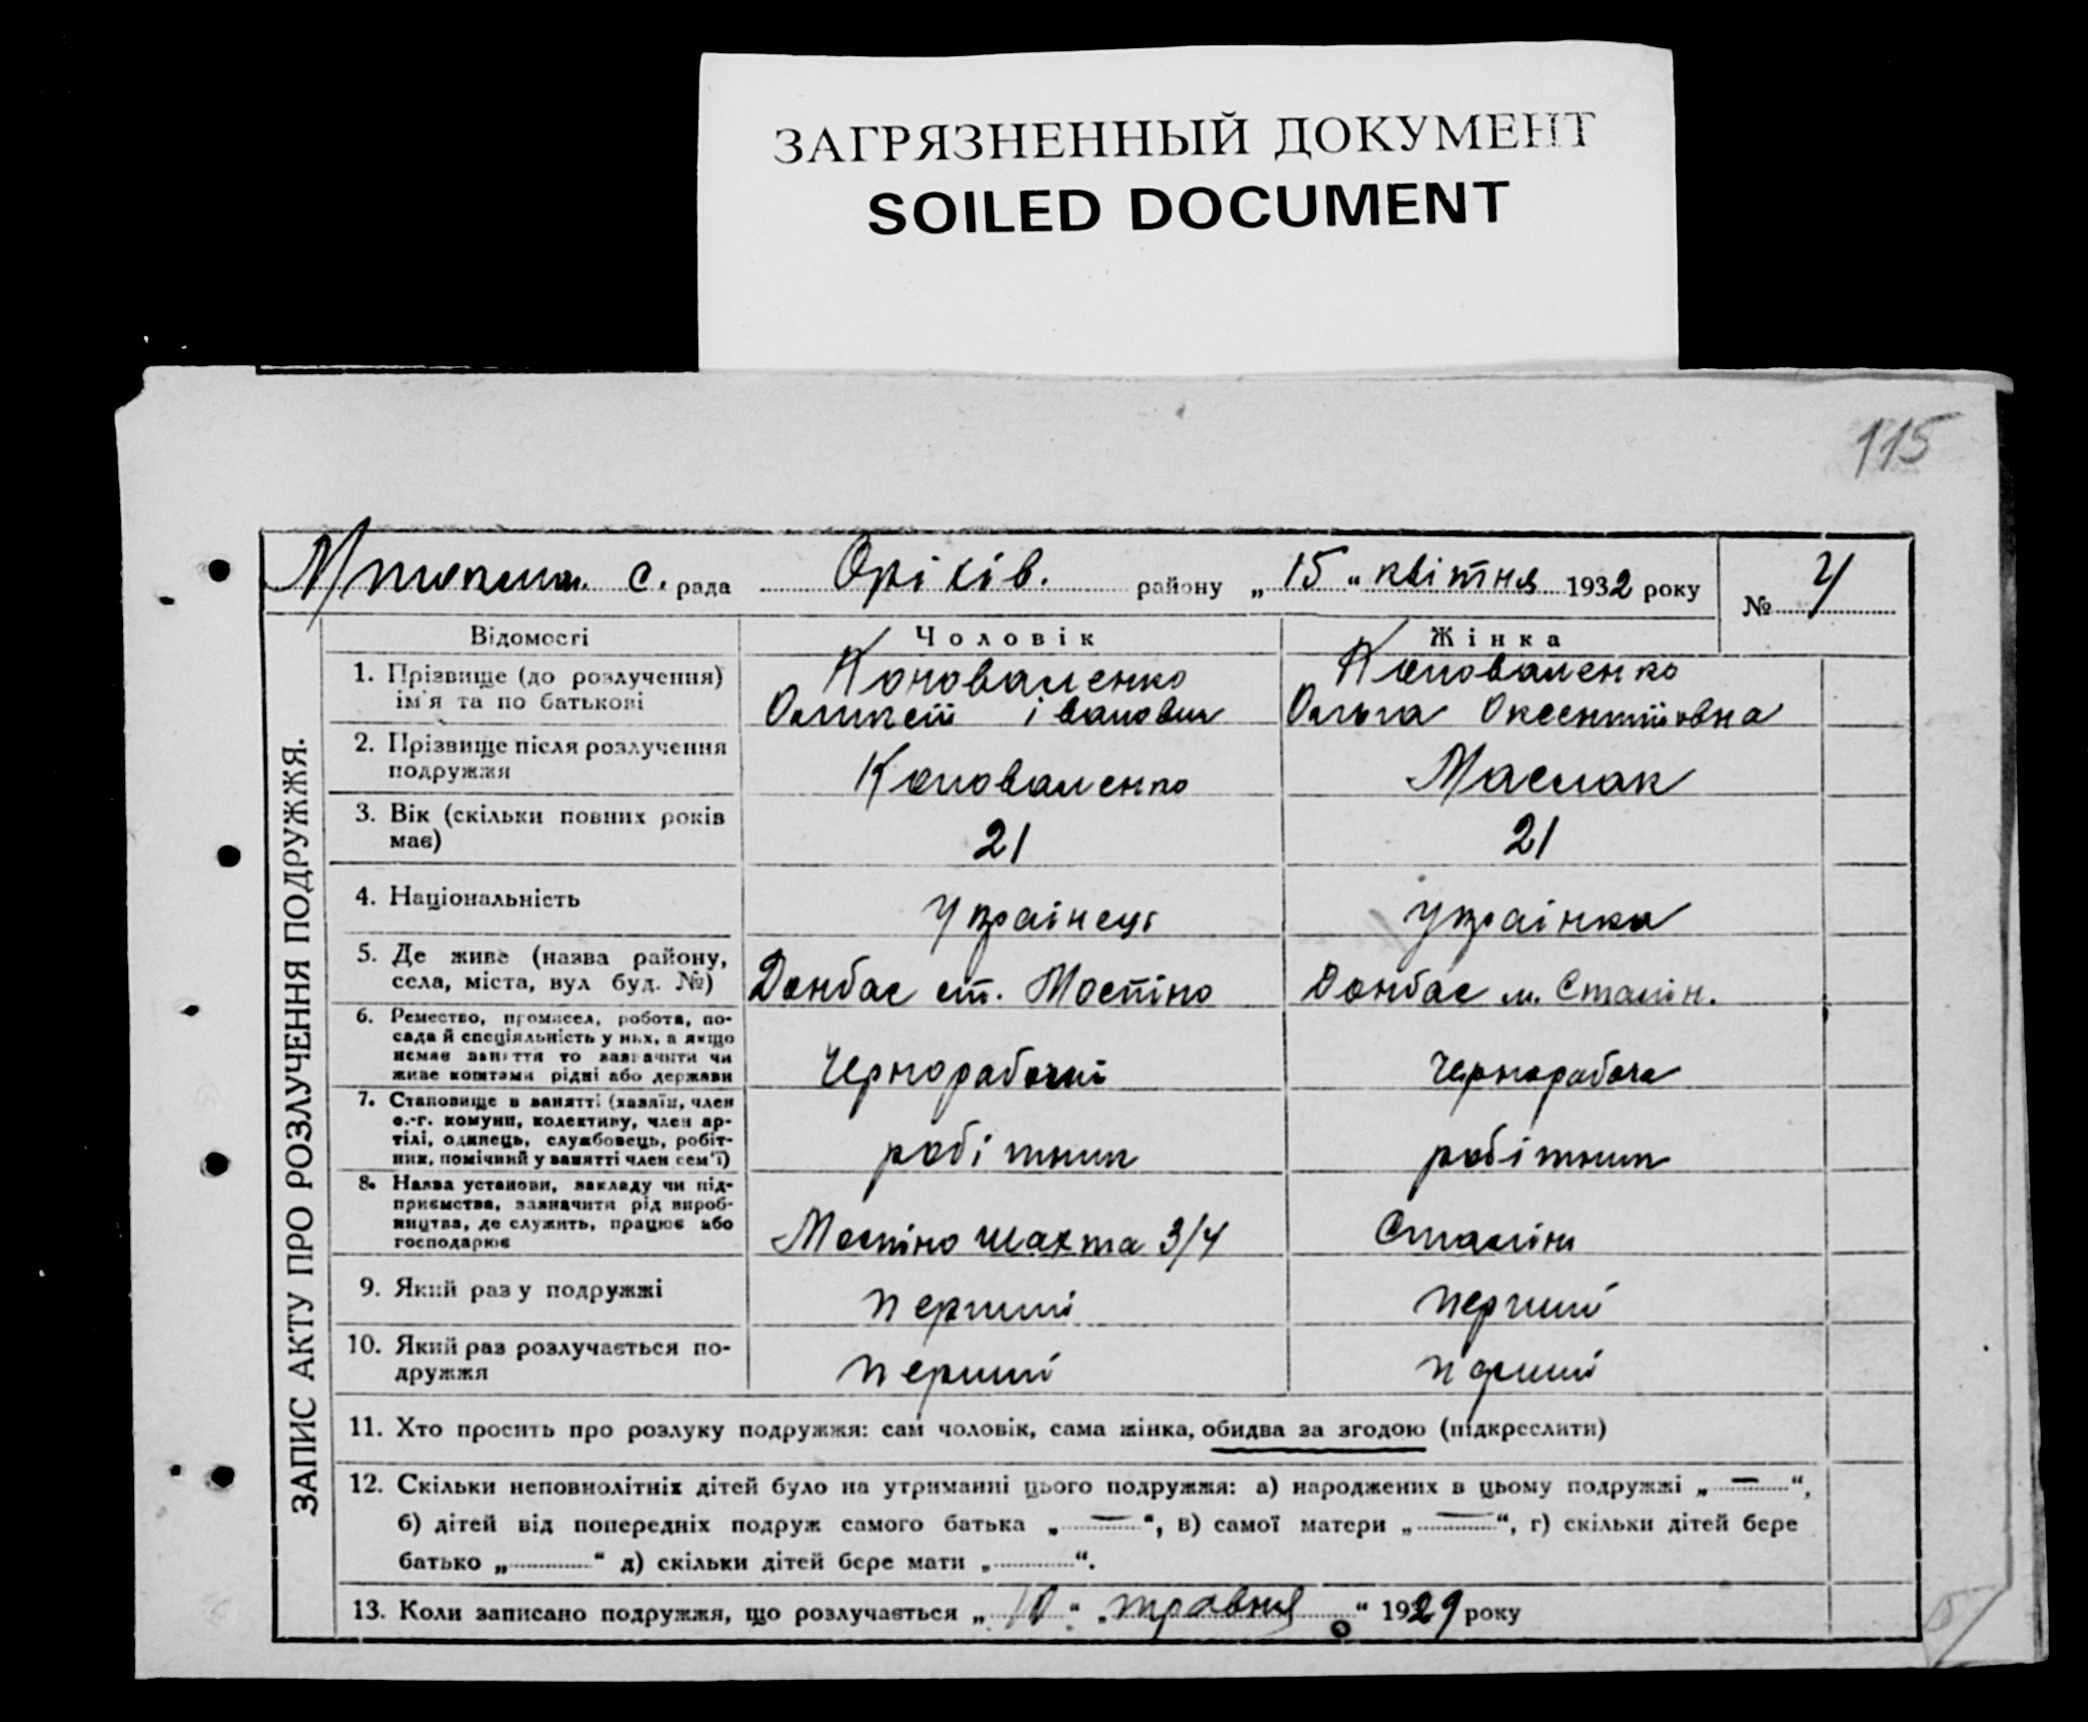 ЗАГРЯЗНЕННЫЙ ДОКУМЕНТ
SOILED DOCUMENT
115
с. рада Оріхів. району „15" квітня 1932 року № 4
ЗАПИС АКТУ ПРО РОЗЛУЧЕННЯ ПОДРУЖЖЯ.
Відомості Чоловік Жінка
1. Прізвище (до розлучення) Коноваленко Коноваленко
ім'я та по батькові Олексій іванович Ольга Оксентіівна
2. Прізвище після розлучення
подружжя Коноваленко Маслак
3. Вік (скільки повних років
має) 21 21
4. Національність Українець Українка
5. Де живе (назва району,
села, міста, вул буд. №) Донбас ст. Мостіно Донбас м. Сталін.
6. Ремество, промисел, робота, по-
сада й спеціяльність у них, а якщо
немає заняття то зазначити чи
живе коштами рідні або держави Чернорабочий Чернорабоча
7. Становище в занятті (хазяїн, член
с.-г. комуни, колективу, член ар-
тілі, одинець, службовець, робіт-
ник, помічний у занятті член сем'ї) робітник робітник
8. Назва установи, закладу чи під-
приємства, зазначити рід вироб-
ництва, де служить, працює або
господарює Мостіно шахта 3/4 Сталіни
9. Який раз у подружжі перший перший
10. Який раз розлучається по-
дружжя перший перший
11. Хто просить про розлуку подружжя: сам чоловік, сама жінка, обидва за згодою (підкреслити)
12. Скільки неповнолітніх дітей було на утриманні цього подружжя: а) народжених в цьому подружжі „—",
б) дітей від попередніх подруж самого батька „—", в) самої матери „—", г) скільки дітей бере
батько „........" д) скільки дітей бере мати „........".
13. Коли записано подружжя, що розлучається „10" „травня" 1929 року